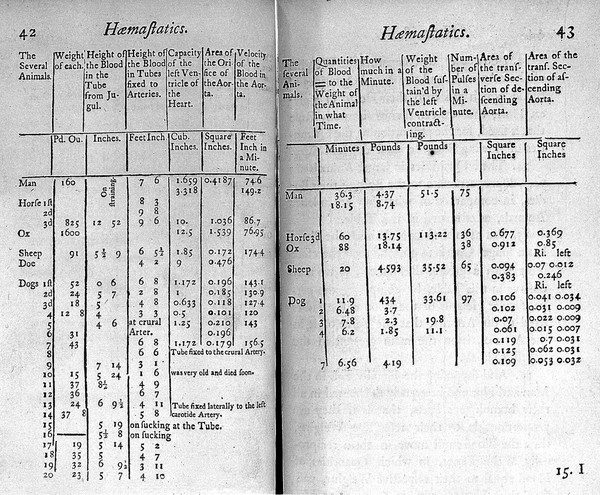 42 Hæmaſtatics.
The Several Animals. | Weight of each. | Height of the Blood in the Tube from Jugul. | Height of the Blood in Tubes fixed to Arteries. | Capacity of the left Ventricle of the Heart. | Area of the Orifice of the Aorta. | Velocity of the Blood in the Aorta.
Pd. Ou. | Inches. | Feet Inch | Cub. Inches. | Square Inches. | Feet Inch in a Minute.
On ſtraining.
Man 160 7 6 1.659 0.4187 74.6
3.318 149.2
Horſe 1ſt 8 3
2d 9 8
3d 825 12 52 9 6 10. 1.036 86.7
Ox 1600 12.5 1.539 76.95
Sheep 91 5½ 9 6 5½ 1.85 0.172 174.4
Doe 4 2 9 0.476
Dogs 1ſt 52 0 6 6 8 1.172 0.196 143.1
2d 24 5 7 2 8 1 0.185 130.9
3d 18 5 4 8 0.633 0.118 127.4
4 12 8 4 3 3 0.5 0.101 120
5 4 6 at crural 1.25 0.210 143
6 31 Arter. 0.196
7 43 6 8 1.172 0.179 156.5
8 6 6 Tube fixed to the crural Artery.
9 7 14 3 1
10 15 5 24 1 6 was very old and died ſoon.
11 37 8½ 4 9
12 36 6 7
13 24 6 9½ 4 11 Tube fixed laterally to the left
14 37 8 carotide Artery.
15 5 19 on ſucking at the Tube.
16 5½ 8 on ſucking
17 19 5 14 5 2
18 35 5 4 7
19 32 6 9½ 3 11
20 23 5 7 4 10
Hæmaſtatics. 43
The ſeveral Animals. | Quantities of Blood = to the Weight of the Animal in what Time. | How much in a Minute. | Weight of the Blood ſuſtain'd by the left Ventricle contracting. | Number of Pulſes in a Minute. | Area of the tranſverſe Section of deſcending Aorta. | Area of the tranſ. Section of aſcending Aorta.
Minutes | Pounds | Pounds | Square Inches | Square Inches
Man 36.3 4.37 51.5 75
18.15 8.74
Horſe 3d 60 13.75 113.22 36 0.677 0.369
Ox 88 18.14 38 0.912 0.85
Ri. left
Sheep 20 4.593 35.52 65 0.094 0.07 0.012
0.383 0.246
Ri. left
Dog 1 11.9 434 33.61 97 0.106 0.041 0.034
2 6.48 3.7 0.102 0.031 0.009
3 7.8 2.3 19.8 0.07 0.022 0.009
4 6.2 1.85 11.1 0.061 0.015 0.007
0.119 0.7 0.031
0.125 0.062 0.031
7 6.56 4.19 0.109 0.053 0.032
15. I